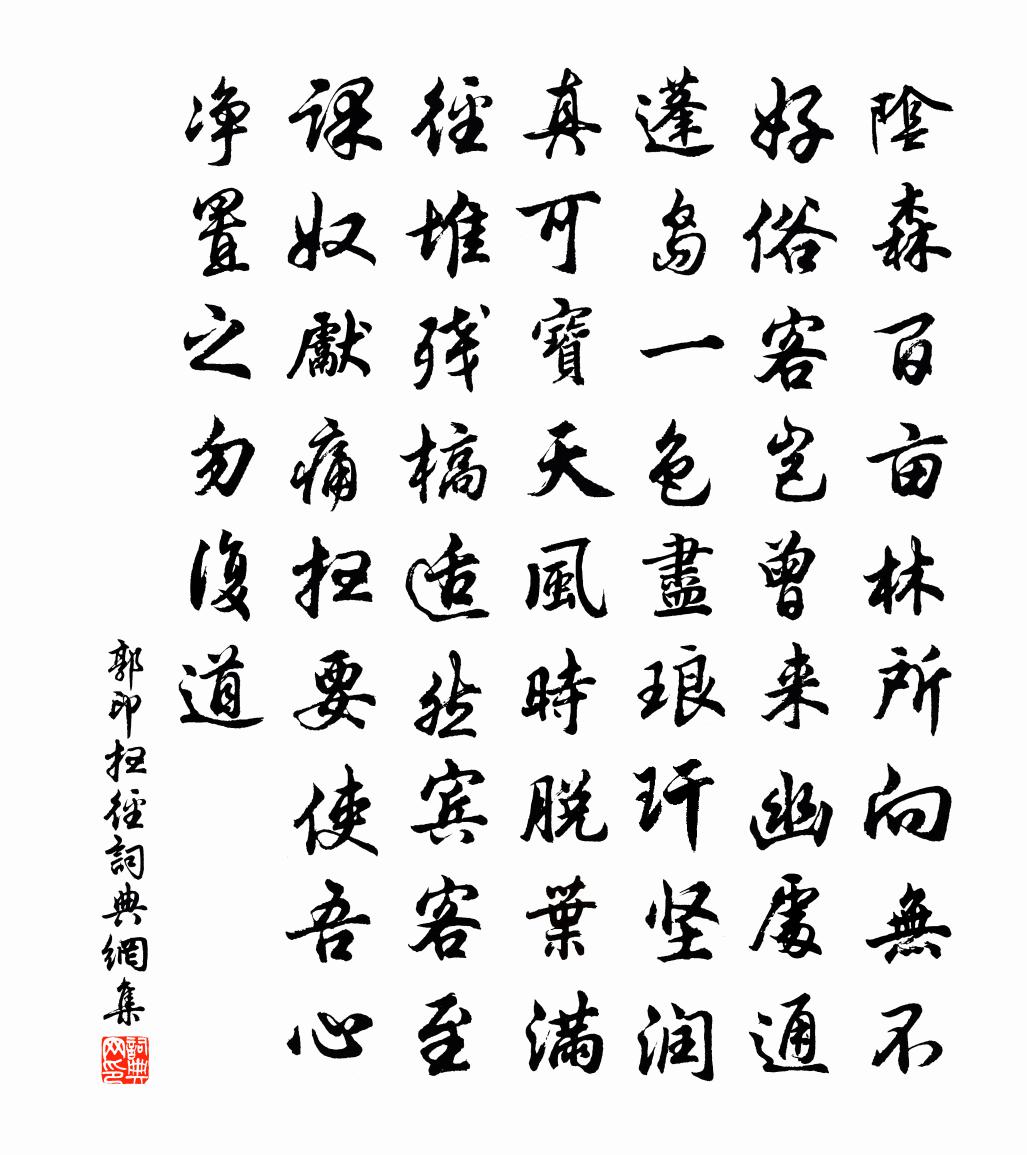 陰森百亩林所向無不
好俗客岂曾来幽處通
蓬岛一色盡琅玕坚润
真可寶天風時脱葉满
徑堆残槁适然宾客至
课奴厭痛扫要使吾心
净置之勿復道
郭印扫徑詞典網集
詞典网印